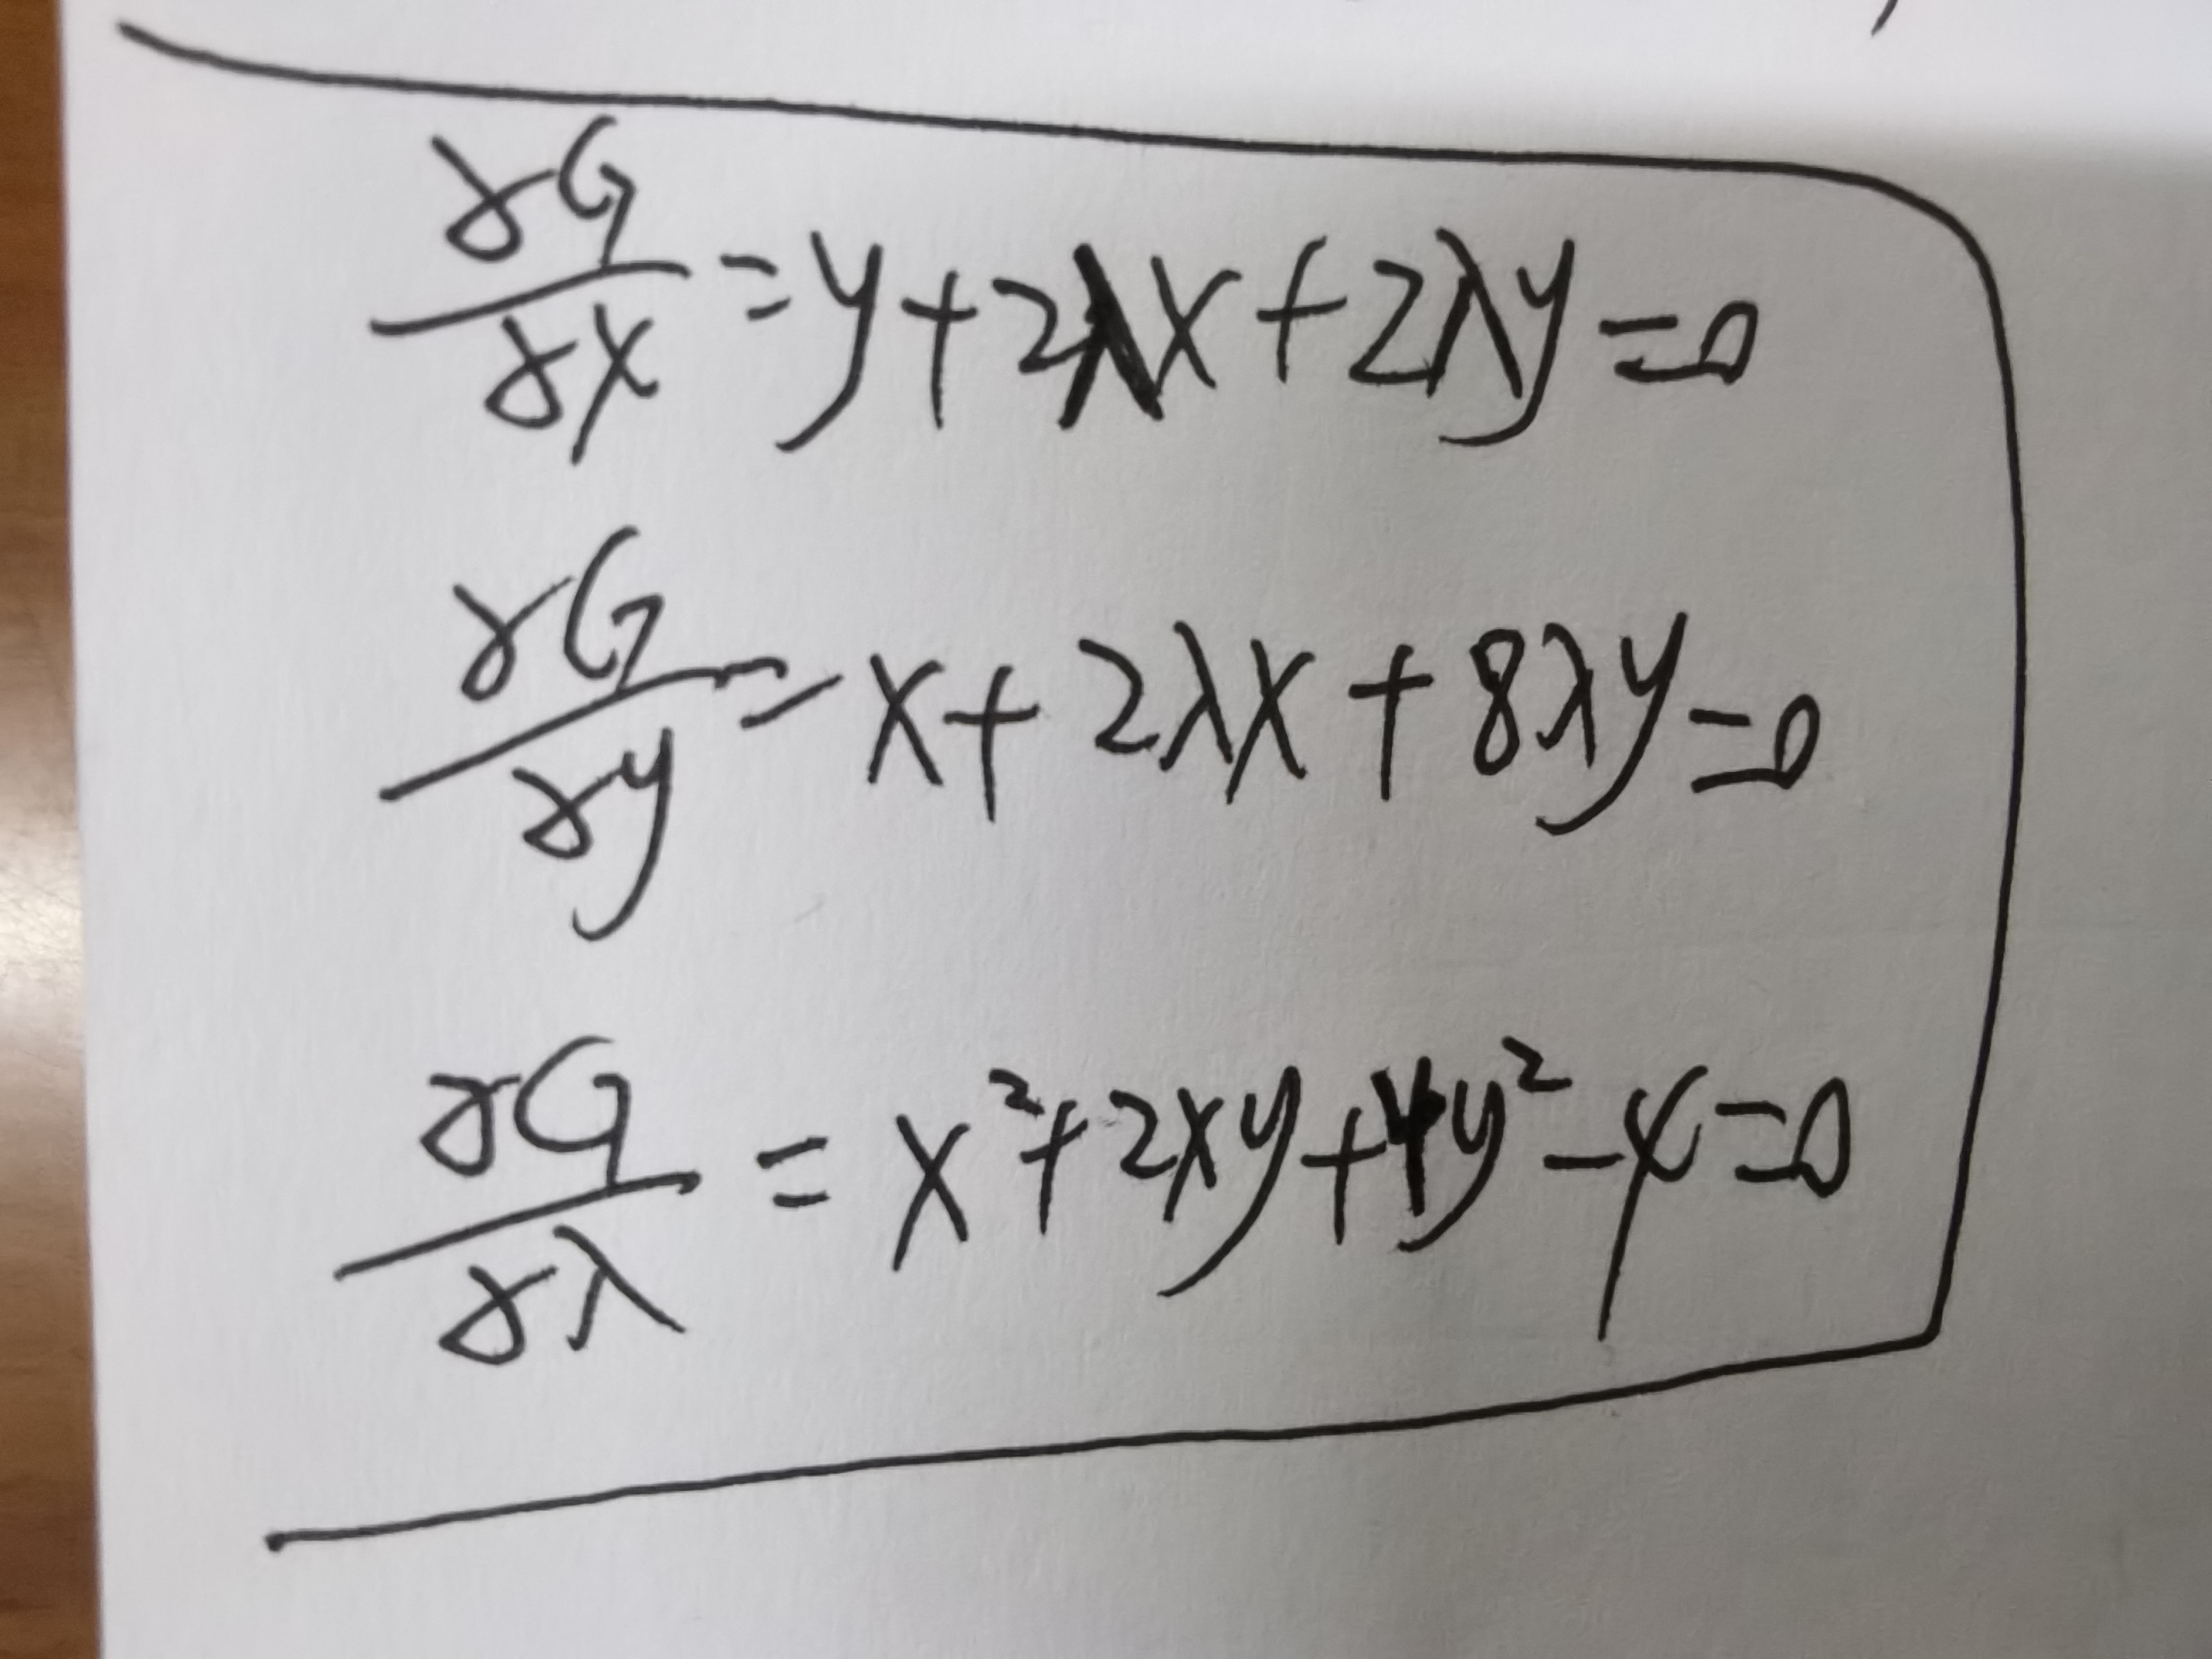 ∂G/∂x = y + 2λx + 2λy = 0
∂G/∂y = x + 2λx + 8λy = 0
∂G/∂λ = x² + 2xy + 4y² - 4 = 0